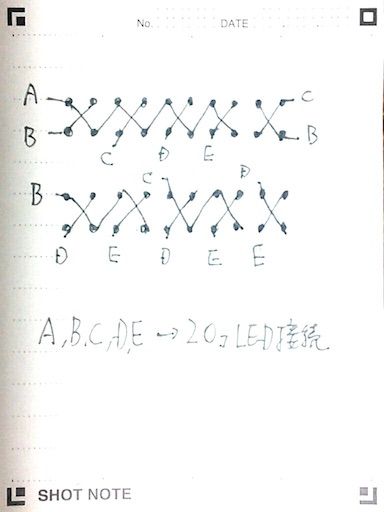 No. DATE
A C
B B
C D E
C D
B
D E D E E
A,B,C,D,E → 20コLED接続
SHOT NOTE